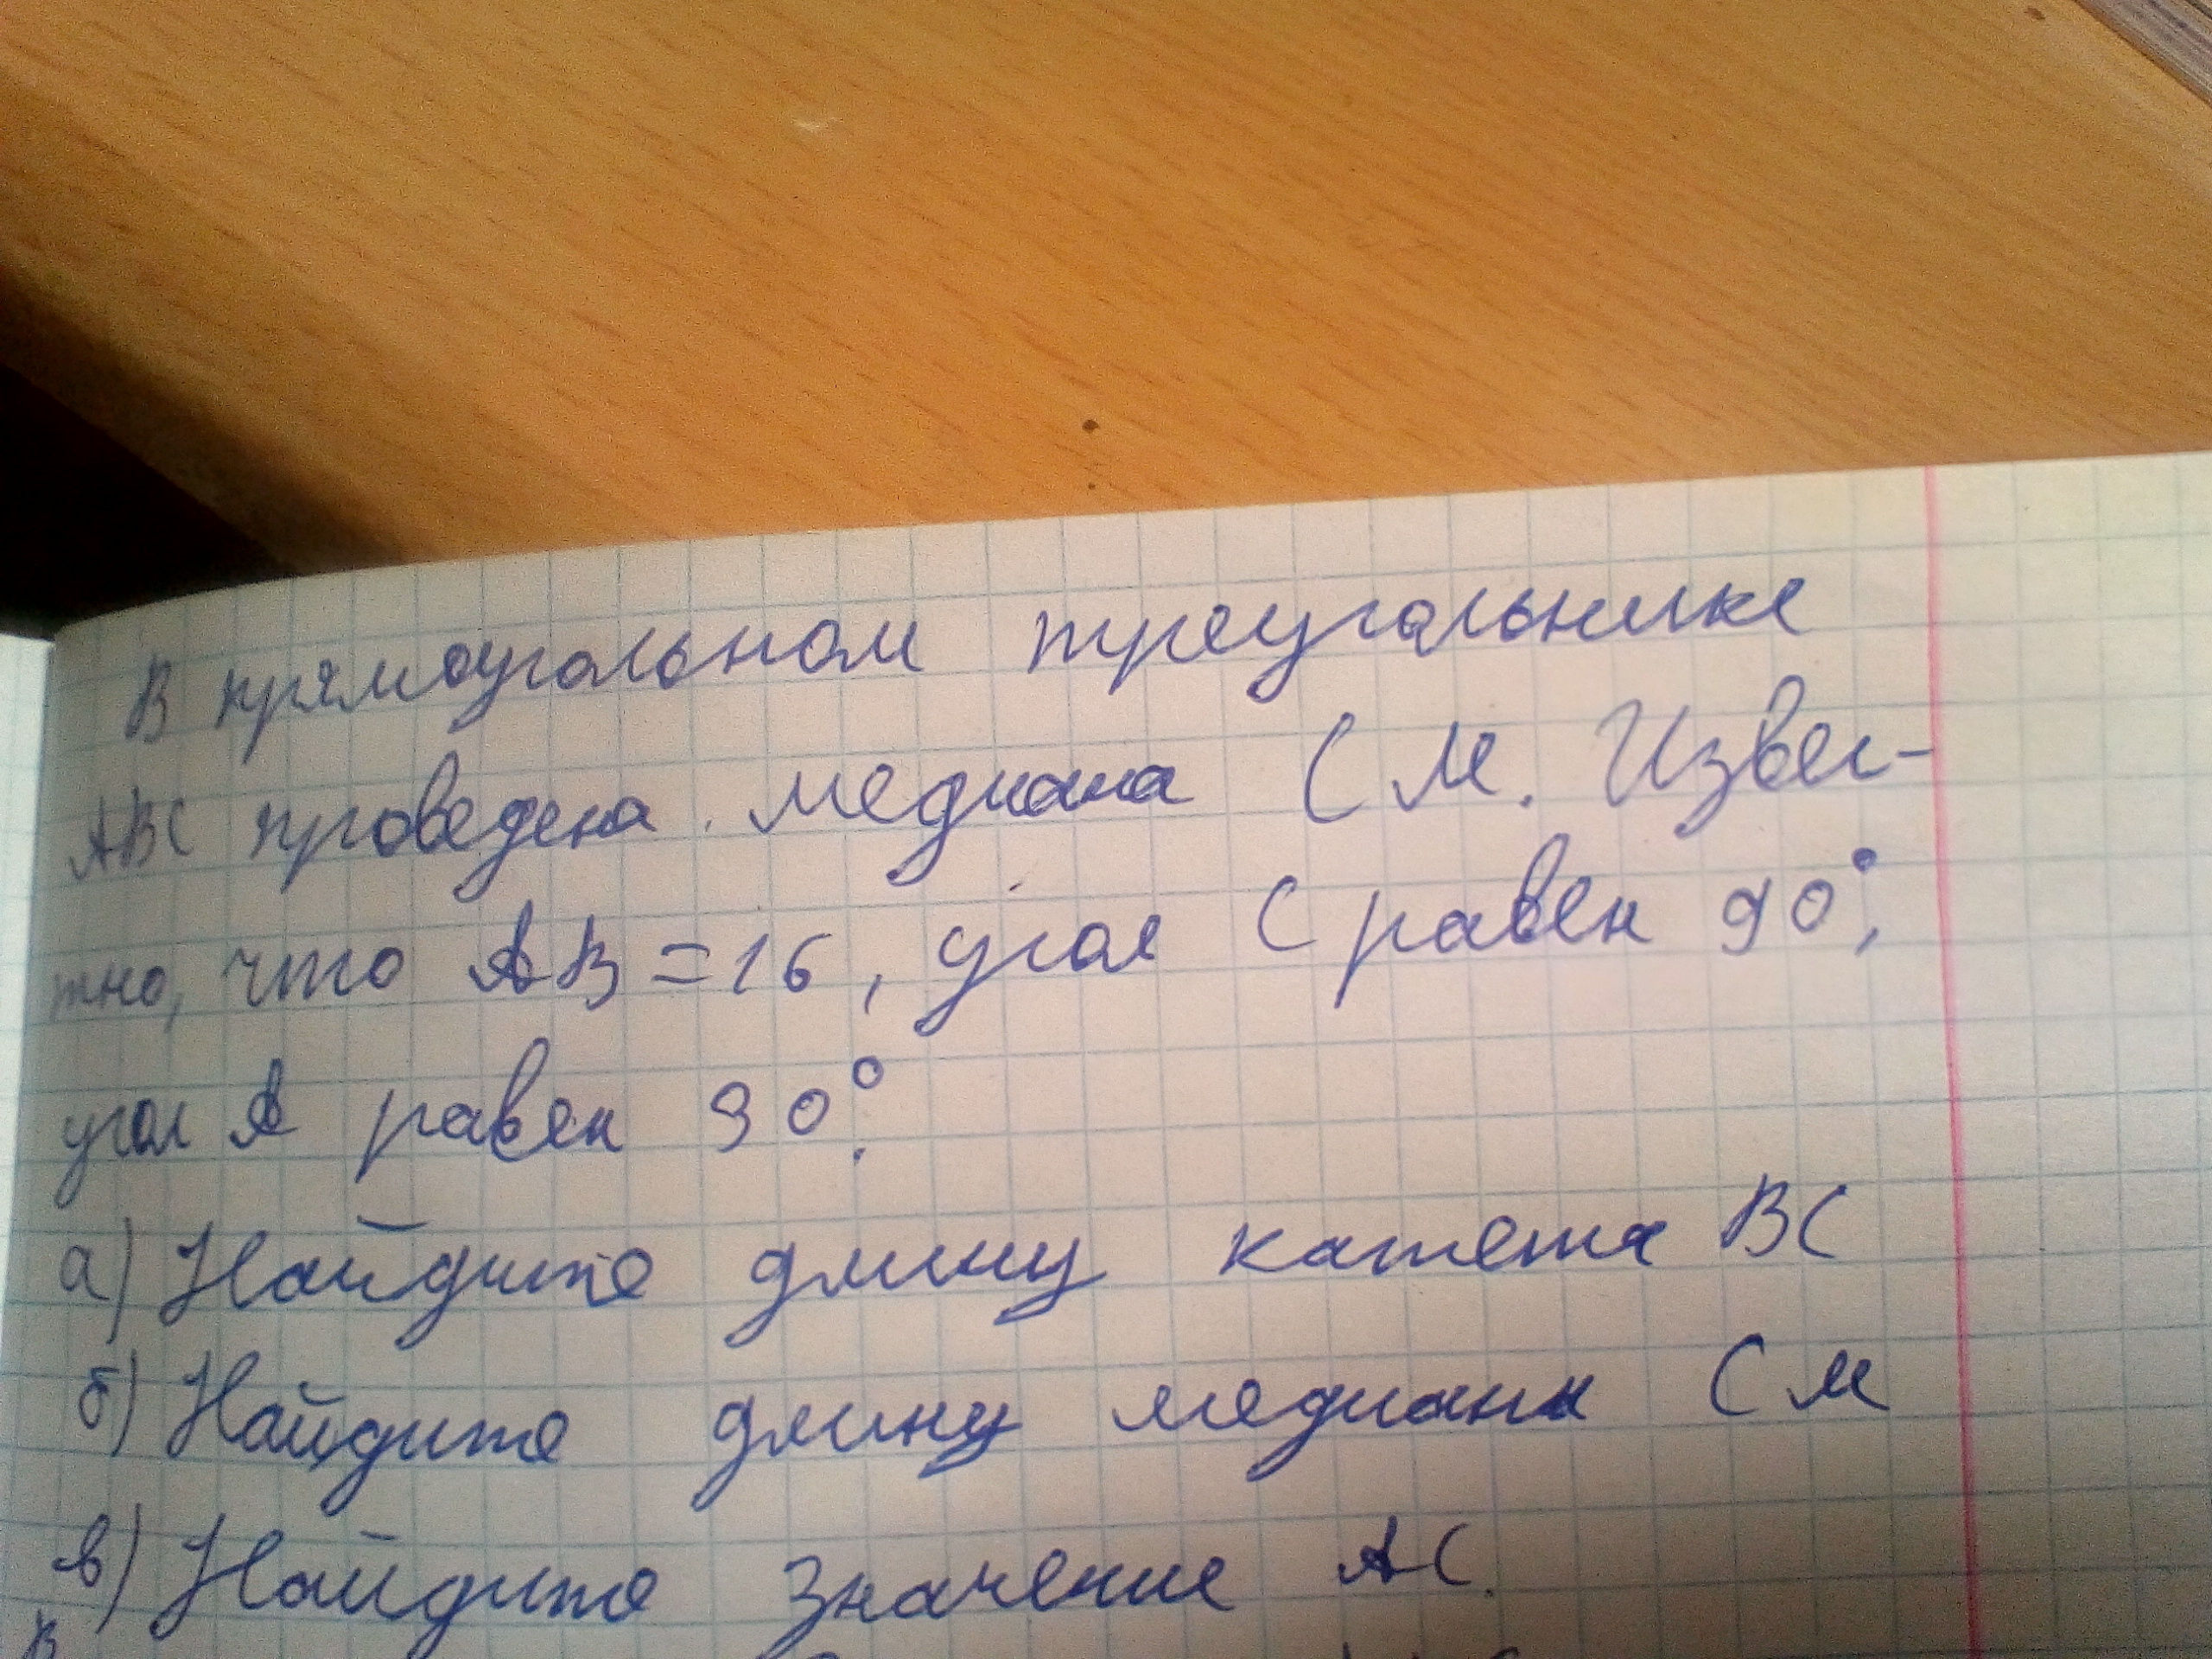 В прямоугольном треугольнике
АВС проведена медиана СМ. Извес-
тно, что АВ=16, угол С равен 90°,
угол А равен 30°.
а) Найдите длину катета ВС
б) Найдите длину медианы СМ
в) Найдите значение АС.